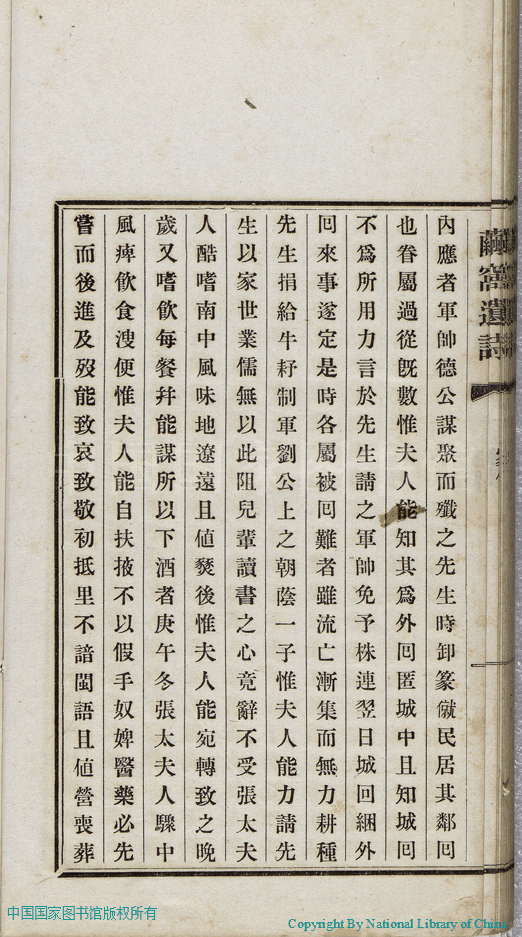 內應者軍帥德公謀聚而殲之先生時卸篆僦民居其鄰回
也眷屬過從旣數惟夫人能知其爲外回匿城中且知城回
不爲所用力言於先生請之軍帥免予株連翌日城回綑外
回來事遂定是時各屬被回難者雖流亡漸集而無力耕種
先生捐給牛籽制軍劉公上之朝蔭一子惟夫人能力請先
生以家世業儒無以此阻兒輩讀書之心竟辭不受張太夫
人酷嗜南中風味地遼遠且値燹後惟夫人能宛轉致之晚
歲又嗜飮每餐幷能謀所以下酒者庚午冬張太夫人驟中
風痺飮食溲便惟夫人能自扶掖不以假手奴婢醫藥必先
嘗而後進及歿能致哀致敬初抵里不諳閩語且値營喪葬
繭窩遺詩
中国国家图书馆版权所有
Copyright By National Library of China